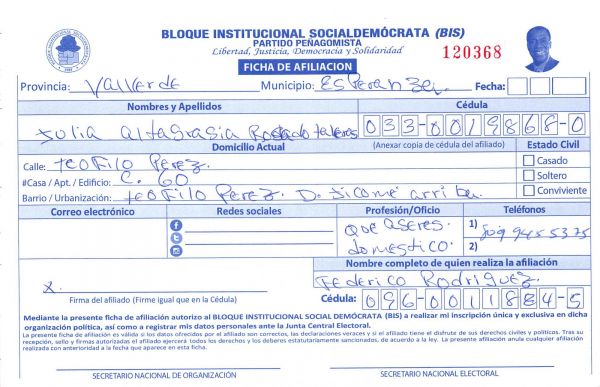 BLOQUE INSTITUCIONAL SOCIALDEMÓCRATA (BIS)
PARTIDO PEÑAGOMISTA
Libertad, Justicia, Democracia y Solidaridad
120368
FICHA DE AFILIACION
Provincia: Valverde Municipio: Esperanza Fecha:
Nombres y Apellidos Cédula
Julia altagrasia Rosado taveras 033-0019868-0
Domicilio Actual (Anexar copia de cédula del afiliado) Estado Civil
Calle: teofilo Perez. Casado
#Casa / Apt. / Edificio: C. 60 Soltero
Barrio / Urbanización: teofilo Perez. D. Jicomé arriba. Conviviente
Correo electrónico Redes sociales Profesión/Oficio Teléfonos
Que aseres. 1) 809 945 5375
domestico. 2)
Nombre completo de quien realiza la afiliación
Federico Rodriguez.
x.
Firma del afiliado (Firme igual que en la Cédula) Cédula: 096-0011884-5
Mediante la presente ficha de afiliación autorizo al BLOQUE INSTITUCIONAL SOCIAL DEMÓCRATA (BIS) a realizar mi inscripción única y exclusiva en dicha
organización política, así como a registrar mis datos personales ante la Junta Central Electoral.
La presente ficha de afiliación es válida si los datos ofrecidos por el afiliado son correctos, las declaraciones veraces y si el afiliado tiene el disfrute de sus derechos civiles y políticos. Tras su
recepción, sello y firmas autorizadas el afiliado ejercerá todos los derechos y los deberes estatutariamente sancionados, de acuerdo a la ley. La presente afiliación anula cualquier afiliación
realizada con anterioridad a la fecha que aparece en esta ficha.
SECRETARIO NACIONAL DE ORGANIZACIÓN SECRETARIO NACIONAL ELECTORAL